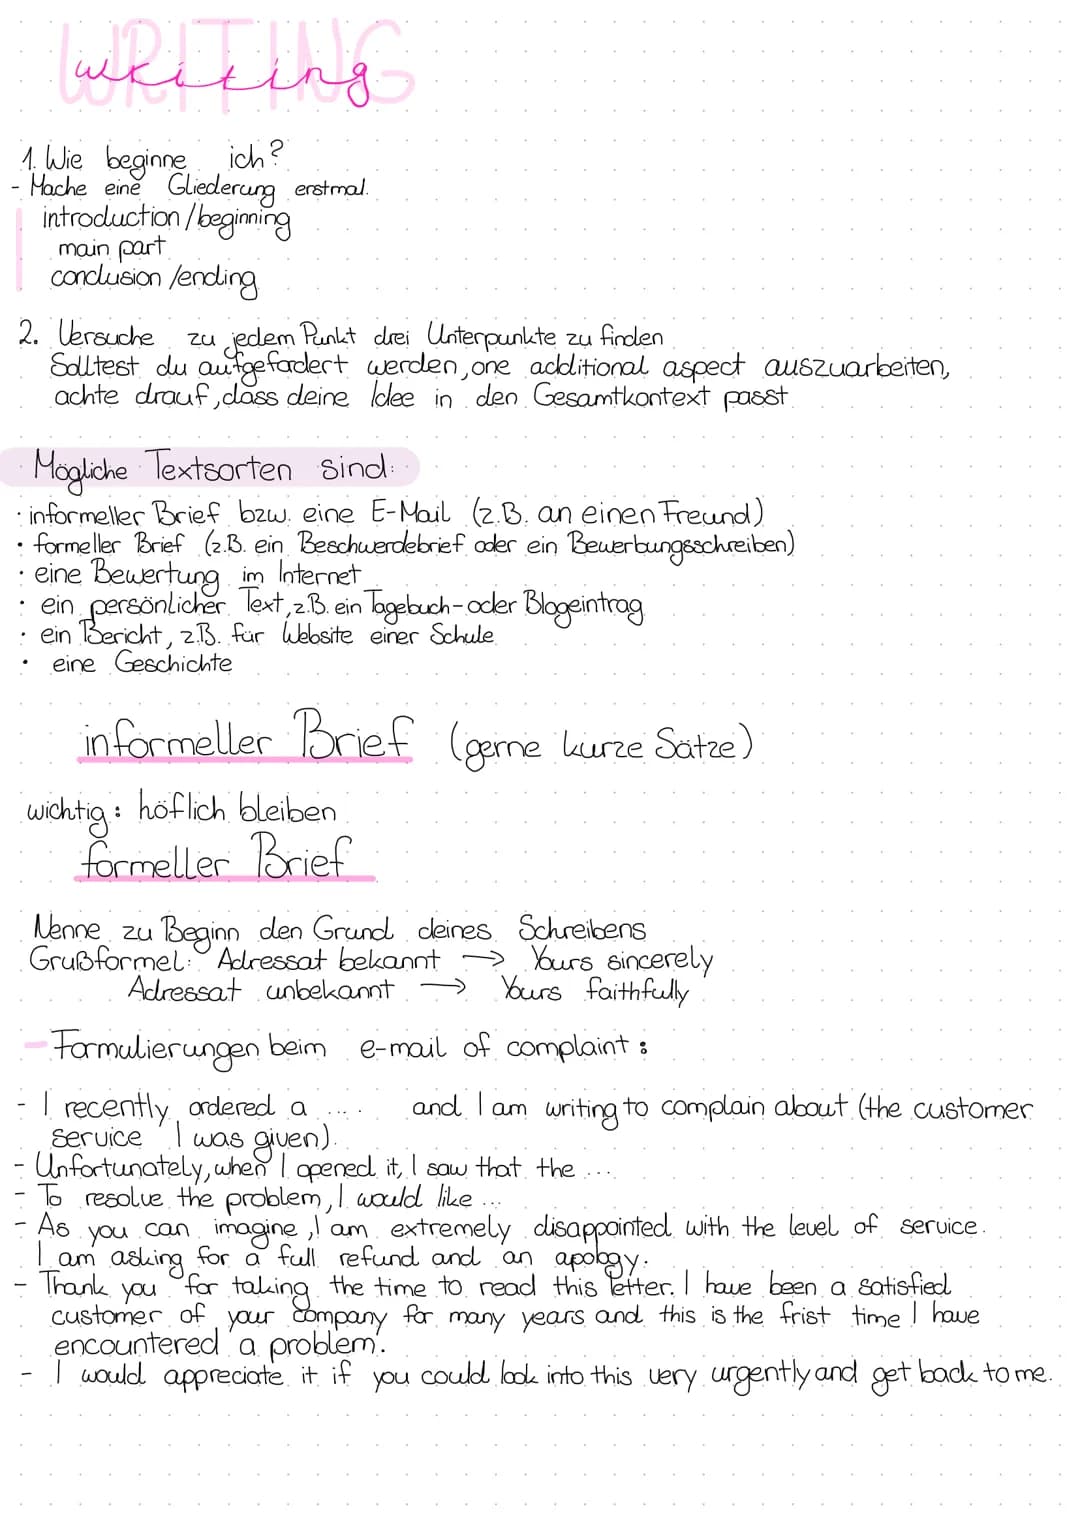 WRITING
writing
1. Wie beginne ich?
- Mache eine Gliederung erstmal.
introduction/beginning
main part
conclusion/ending
2. Versuche zu jedem Punkt drei Unterpunkte zu finden
Solltest du aufgefordert werden, one additional aspect auszuarbeiten,
achte drauf, dass deine Idee in den Gesamtkontext passt
Mögliche Textsorten sind:
· informeller Brief bzw. eine E-Mail (z.B. an einen Freund)
· formeller Brief (z.B. ein Beschwerdebrief oder ein Bewerbungsschreiben)
· eine Bewertung im Internet
· ein persönlicher Text, z.B. ein Tagebuch- oder Blogeintrag
· ein Bericht, z.B. für Website einer Schule
· eine Geschichte
informeller Brief (gerne kurze Sätze)
wichtig: höflich bleiben
formeller Brief
Nenne zu Beginn den Grund deines Schreibens
Grußformel: Adressat bekannt → Yours sincerely
Adressat unbekannt → Yours faithfully
- Formulierungen beim e-mail of complaint:
- I recently ordered a .... and I am writing to complain about (the customer
service I was given).
- Unfortunately, when I opened it, I saw that the ...
- To resolve the problem, I would like ...
- As you can imagine, I am extremely disappointed with the level of service.
I am asking for a full refund and an apology.
- Thank you for taking the time to read this letter. I have been a satisfied
customer of your company for many years and this is the frist time I have
encountered a problem.
- I would appreciate it if you could look into this very urgently and get back to me.